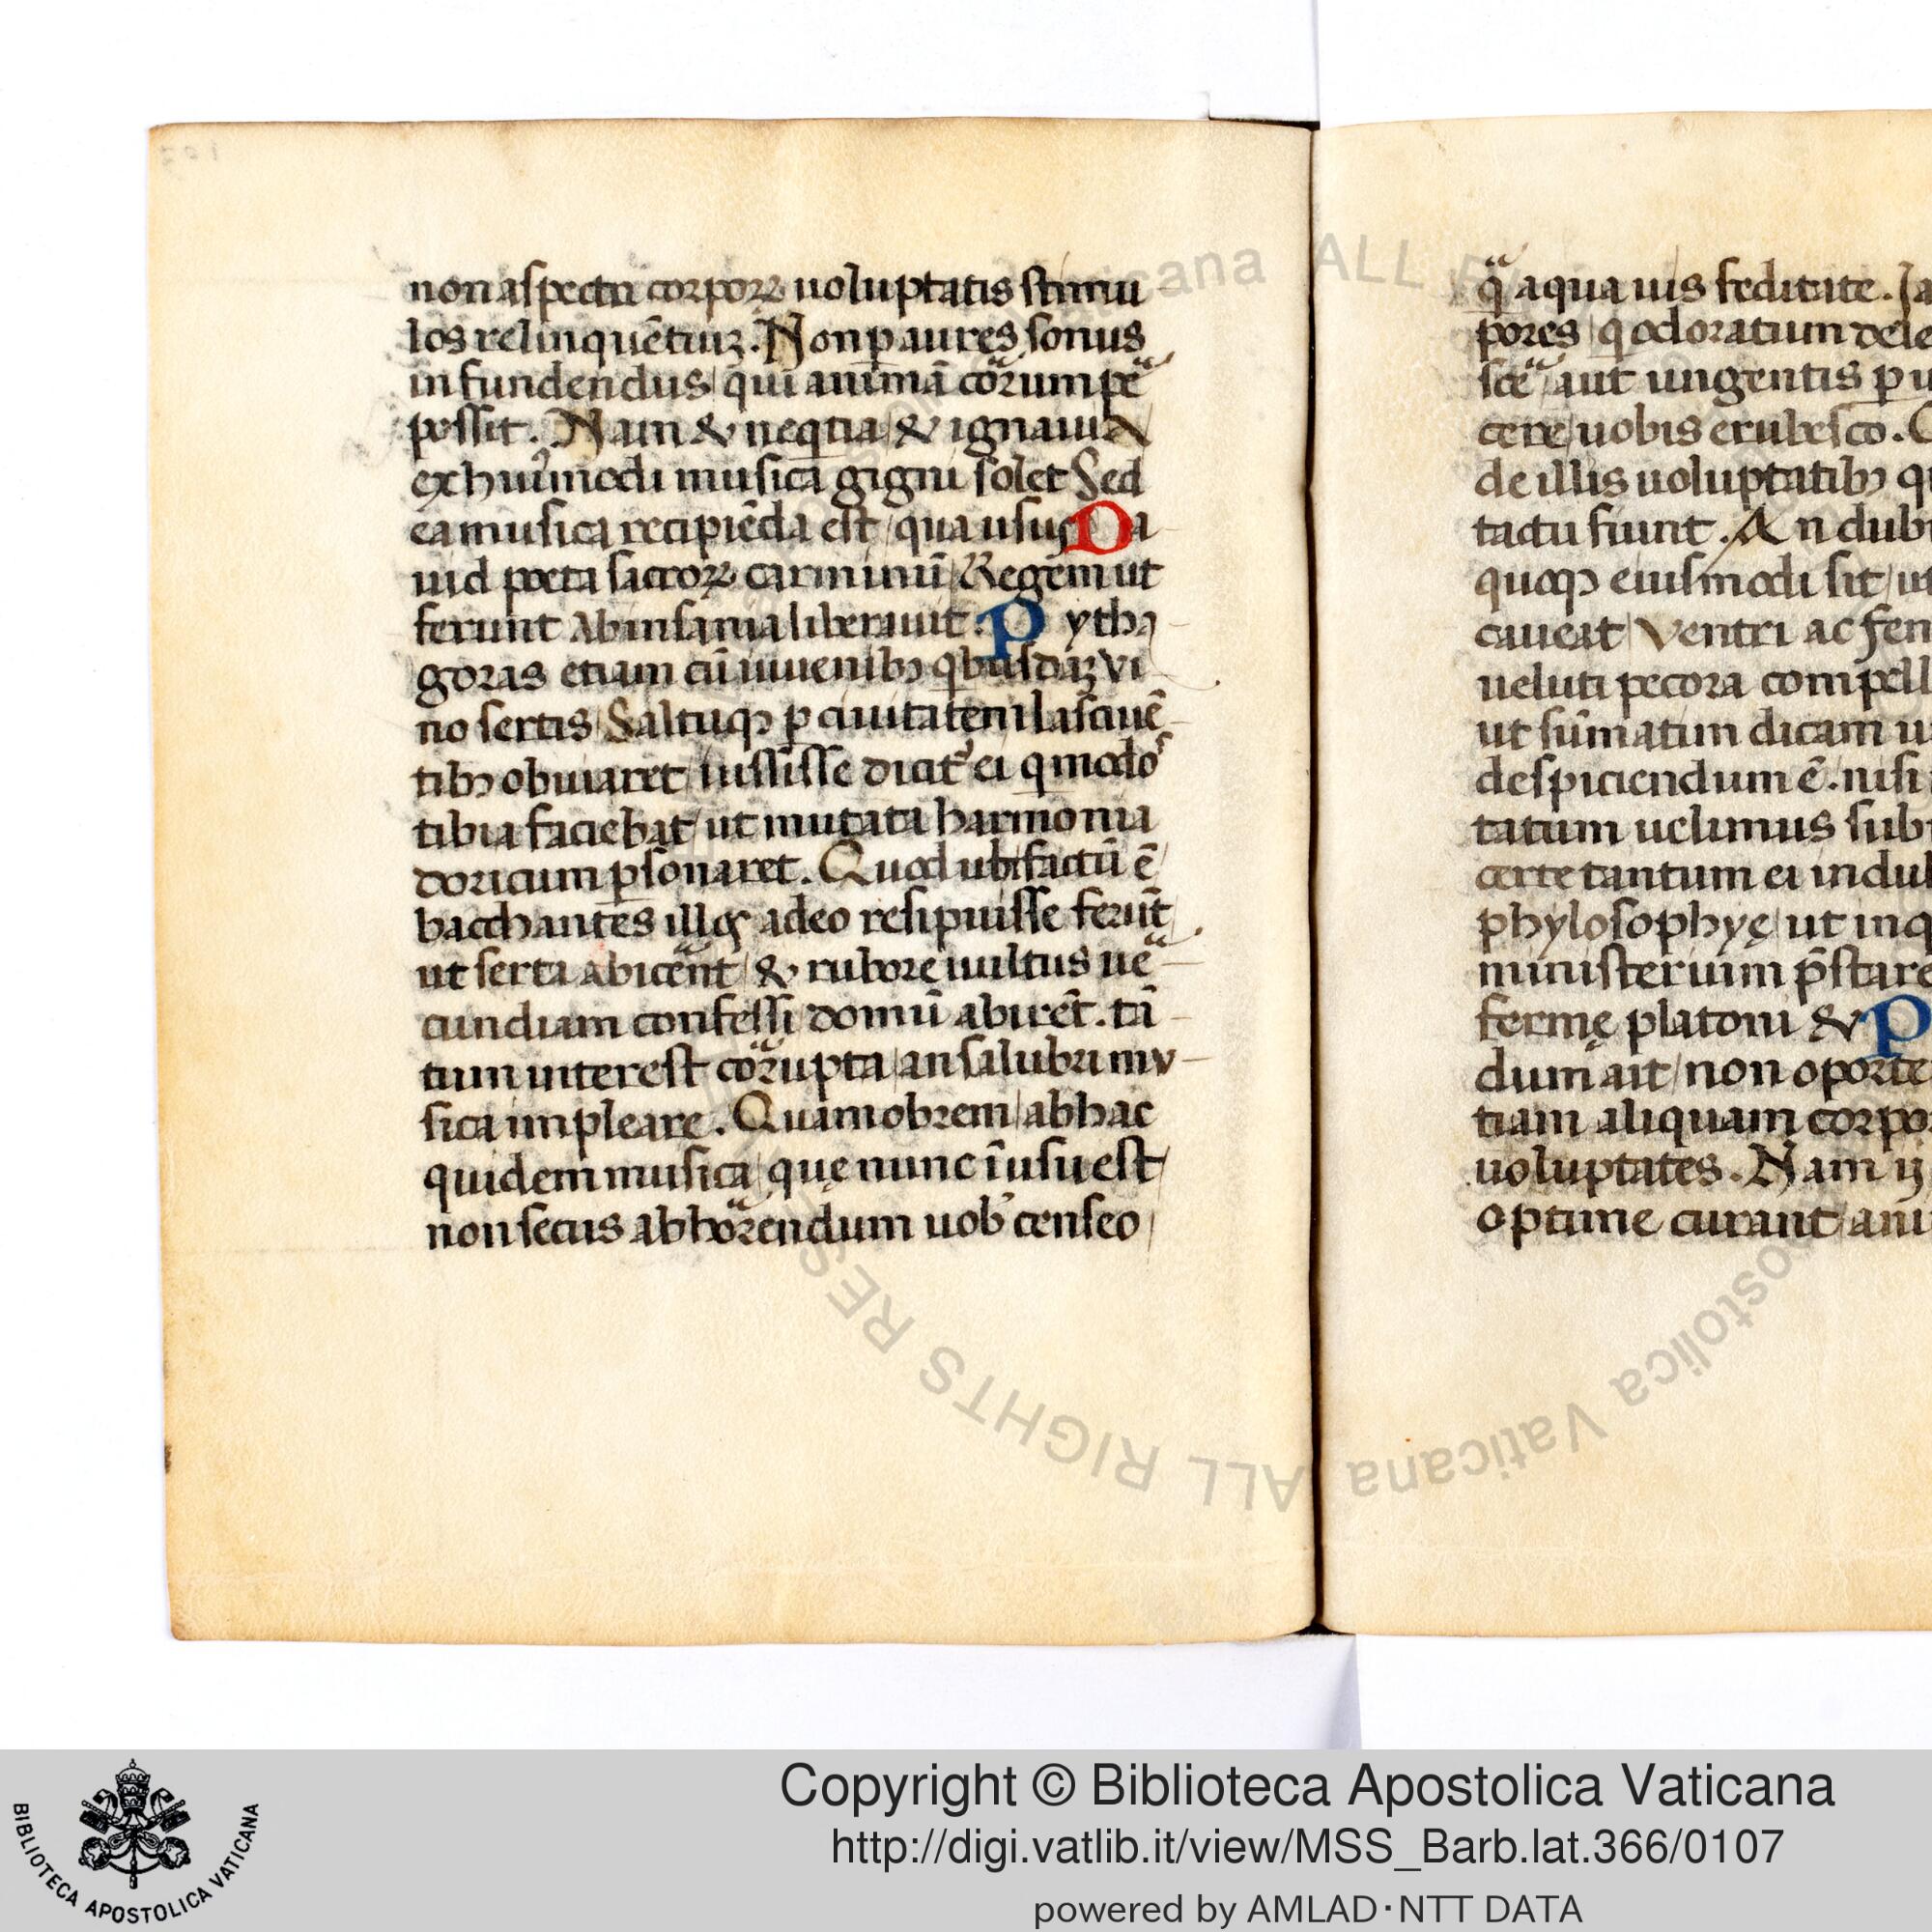 non aspectu corporꝝ uoluptatis stimu
los relinquētur. Non ꝑ aures sonus
infundendus qui animā corrumpe
possit. Nam & neqtia & ignauia
ex huiꝰmodi musica gigni solet Sed
ea musica recipiēda est / qua usus Da
uid poeta sacroꝝ carminū Regem ut
ferunt ab insania liberauit. Pytha
goras etiam cū iuuenibꝰ qbusdaʒ vi
no sertis Saltuqꝫ ꝑ ciuitatem lasciuē
tibꝰ obuiaret / iussisse dicit᷑ ei q modoˢ
tibia faciebat / ut mutata harmonia
doricum ꝑsonaret. Quod ubi factū ē
bacchantes illos adeo resipuisse ferūt
ut serta abicerent / & rubore uultus ue
cundiam confessi domū abirēt. tā
tum interest corrupta / an salubri mu
sica impleare. Quamobrem / ab hac
quidem musica / quę nunc ī usu est
non secus abhorrendum uobꝰ censeo
qᵃ aqua uis feditate. Ia
pores / q odoratum dele
sce / aut ungentis ꝑ u
cere / uobis erubesco.
de illis uoluptatibꝰ q
tactu fiunt. An dub
quoqꝫ eiusmodi sit / ut
caueat / Ventri ac fen
ueluti pecora compell
ut sūmatim dicam u
despiciendum ē. nisi
tatum uelimus sub
certe tantum ei indul
phylosophyę / ut inq
ministerium p̄stare
fermę platoni & P
dum ait / non oporte
tiam aliquam corpo
uoluptates. Nam ij
optime curant / ani
Copyright © Biblioteca Apostolica Vaticana
http://digi.vatlib.it/view/MSS_Barb.lat.366/0107
powered by AMLAD·NTT DATA
BIBLIOTECA APOSTOLICA VATICANA